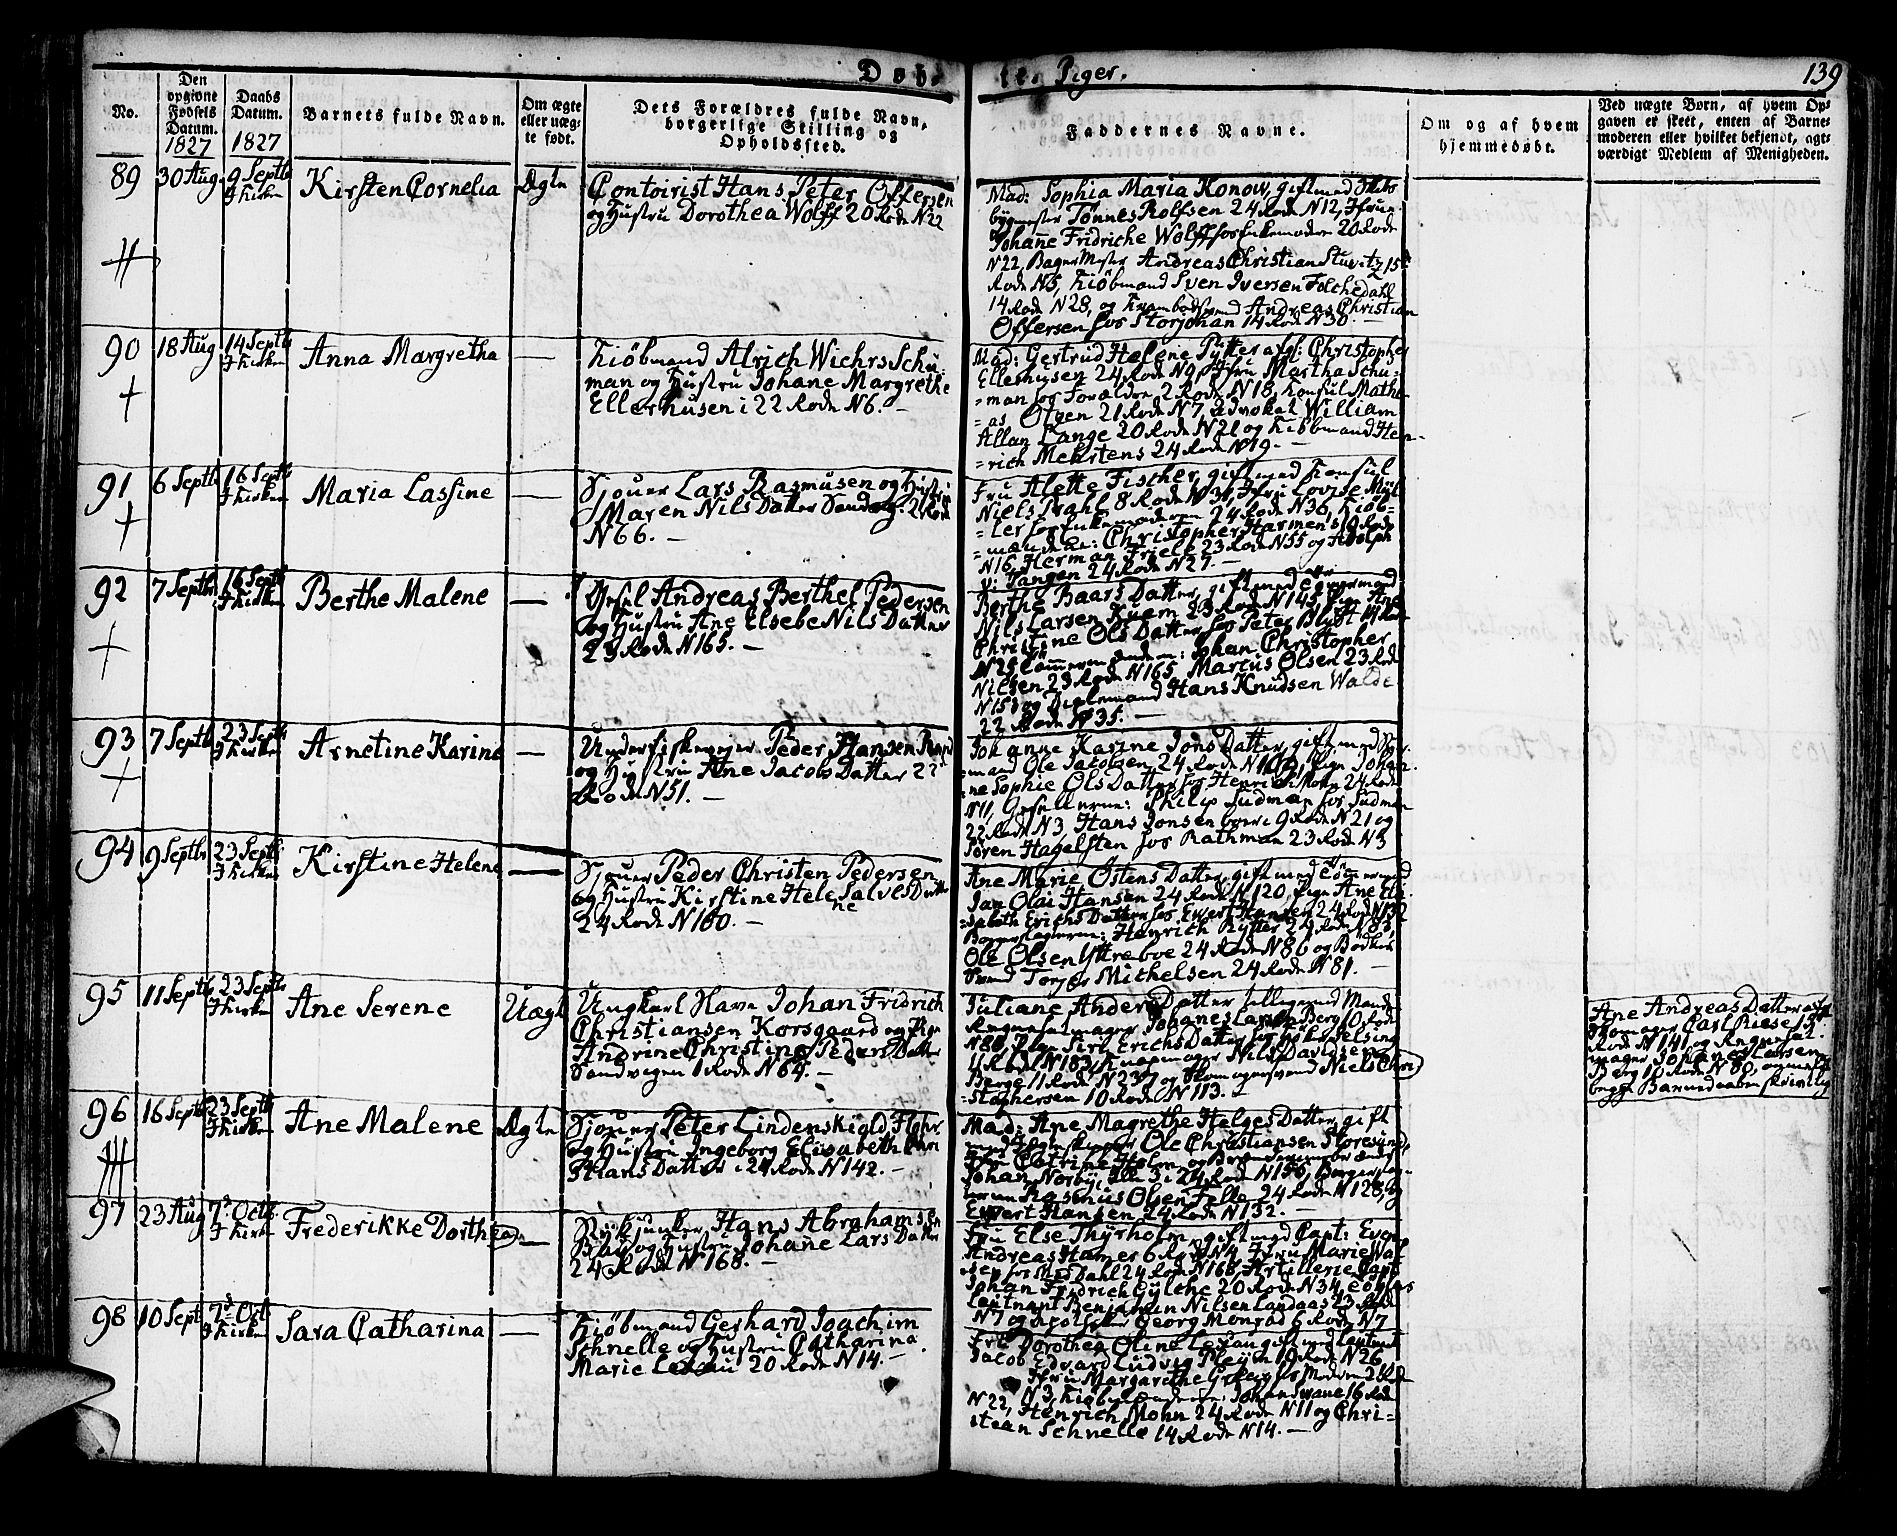 Døb te. Piger.
139
No.
Den opgivne Fødsels Datum. 1827
Daabs Datum. 1827
Barnets fulde Navn.
Om ægte eller uægte født.
Dets Forældres fulde Navn, borgerlige Stilling og Opholdssted.
Faddernes Navne.
Om og af hvem hjemmedøbt.
Ved uægte Børn, af hvem Op-
gaven er skeet, enten af Barne-
moderen eller hvilket bekjendt, agt-
værdigt Medlem af Menigheden.
89
30 Aug
9 Septb
I Kirken
Kirsten Cornelia
Ægte
Contoirist Hans Peter Offersen
og Hustru Dorothea Wolff 20 Rode N22
Mad: Sophia Maria Konow, gift med Skibs
bÿgmester Tönnes Rolfsen 24 Rode N12, Jfru
Johañe Fridriche Wolff hos 20 Rode
N22, Bager Mster Andreas Christian Stuvitz 15
Rode N5, Kiöbmand Sven Iversen
14 Rode N28, og Andreas Christian
Offersen hos Storjohan 14 Rode N30. —
90
18 Aug
14 Septb
I Kirken
Anna Margretha
—
Kiöbmand Alrich Wichrs Schu
man og Hustru Johane Margrethe
Ellerhusen i 22 Rode N6. —
Mad: Gertrud Helene Pÿtter afgl: Christopher
Ellerhusen 24 Rode N9, Jfru Martha Schu=
=man hos Forældre 2 Rode N18, Konsul Mathi=
=as 21 Rode N7, Advokat William
Allan Lange 20 Rode N21 og Kiöbmand Hen=
=rich Mehrtens 24 Rode N19. —
91
6 Septb
16 Septb
I Kirken
Maria Lassine
—
Sjouer Lars Rasmusen og Hustru
Maren Nils Datter Sandvig. 2 Rode
N66. —
Fru Alette Fischer, gift med Konsul
Niels Prahl 8 Rode N31, Jfru Lovise Mÿl=
=ler hos 24 Rode N36, Kiöb=
=mændene: Christopher Harmens 10 Rode
N16, Herman Friele 23 Rode N55 og Adolph
v: Tangen 24 Rode N27. —
92
7 Septbr
16 Septb
I Kirken
Berthe Malene
—
Andreas Berthel Pedersen
og Hustru Ane Elsebe Nils Datter
23 Rode N165. —
Berthe Baars Datter, gift med Tömermand
Nils Larsen Kvam 23 Rode N145, Pige Ane
Christine Ols Datter hos Peter Blÿdt 14 Rode
N25, Tömermændene: Johan Christopher
Nilsen 23 Rode N165, Marcus Olsen 23 Rode
N153 og Hans Knudsen Walde
22 Rode N35. —
93
7 Septb
23 Septb
I Kirken
Arnetine Karine
—
Peder Hansen
og Hustru Ane Jacobs Datter 22
Rode N51. —
Johanne Karine Jons Datter, gift med
mand Ole Jacobsen 24 Rode Pige Johan=
=ne Sophie Ols Datter hos Henrich Mohn 24 Rode
N11, Philip Sudman hos Sudman
22 Rode N3, Hans Jonsen 9 Rode N21 og
Sören Hagelsten hos Rathman 23 Rode N3
94
9 Septbr
23 Septb
I Kirken
Kirstine Helene
—
Sjouer Peder Christen Pedersen
og Hustru Kirstine Helene Salves Datter
24 Rode N160. —
Ane Marie Ostens Datter, gift med Tömermand
Jan Olai Hansen 24 Rode N120, Pige Ane Eli=
=sabeth Erichs Datter hos Ewert Hansen 24 Rode N132
Henrich Rÿtter 24 Rode N83,
Ole Olsen Yttreboe 24 Rode N86 og Bödker
Svend Torger Michelsen 24 Rode N81. —
95
11 Septb
23 Septb
I Kirken
Ane Serene
Uægte
Ungkarl Havn Johan Fridrich
Christiansen Korsgaard og Pige
Andrine Christine Peders Datter
Sandvigen 1 Rode N64. —
Juliane Anders Datter
Johanes Larsen Berg 10 Rode
N80, Pige Siri Erichs Datter
11 Rode N183, Nils Davidsen
Berge 11 Rode N237 og Skomagersvend Niels Chri
=stophersen 10 Rode N113. —
Ane Andreas Datter
Skomager Carl Riese 19
Rode N141 og
mager Johanes Larsen
Berg 10 Rode N80,
96
16 Septb
23 Septb
I Kirken
Ane Malene
Ægte
Sjouer Peter Lindenskiold
og Hustru Ingeborg Elisabeth
Hans Datter i 24 Rode N142. —
Mad: Ane Magrethe Helges Datter, gift
med Ole Christiansen Storesund,
Catrine Holm, og
Johan Norbÿ, alle 3 i 24 Rode N156,
Rasmus Olsen Telle 24 Rode N128, og
Ewert Hansen 24 Rode N132. —
97
23 Aug
7 Octb
I Kirken
Frederikke Dorthea
—
Hans Abrahamsen
og Hustru Johañe Lars Datter
24 Rode N168. —
Fru Else Thÿrholm, gift med Capt: Even
Andreas Hames 6 Rode N4, Jfru Marie
hos Md: Dahl 24 Rode N168, Artillerie Capt
Johan Fridrich Gÿlche 20 Rode N34,
Leutnant Benjamin Nilsen Landaas 23 Rode
N7 og Apotheker Georg Monrad 6 Rode N7
98
10 Sept
7 Oct
I Kirken
Sara Catharina
—
Kiöbmand Gerhard Joachim
Schnelle og Hustru Catharina
Marie Lexau 20 Rode N14. —
Fru Dorothea Oline Lexau gift med Leutnant
Jacob Edvard Ludvig Pleÿm 19 Rode N26,
Jfru Margarethe hos Moderen 2 Rode
N3, Kiöbmændene: Johan Irvane 16 Rode
N22, Henrich Mohn 24 Rode N11 og Chri=
stian Schnelle 14 Rode N14. —